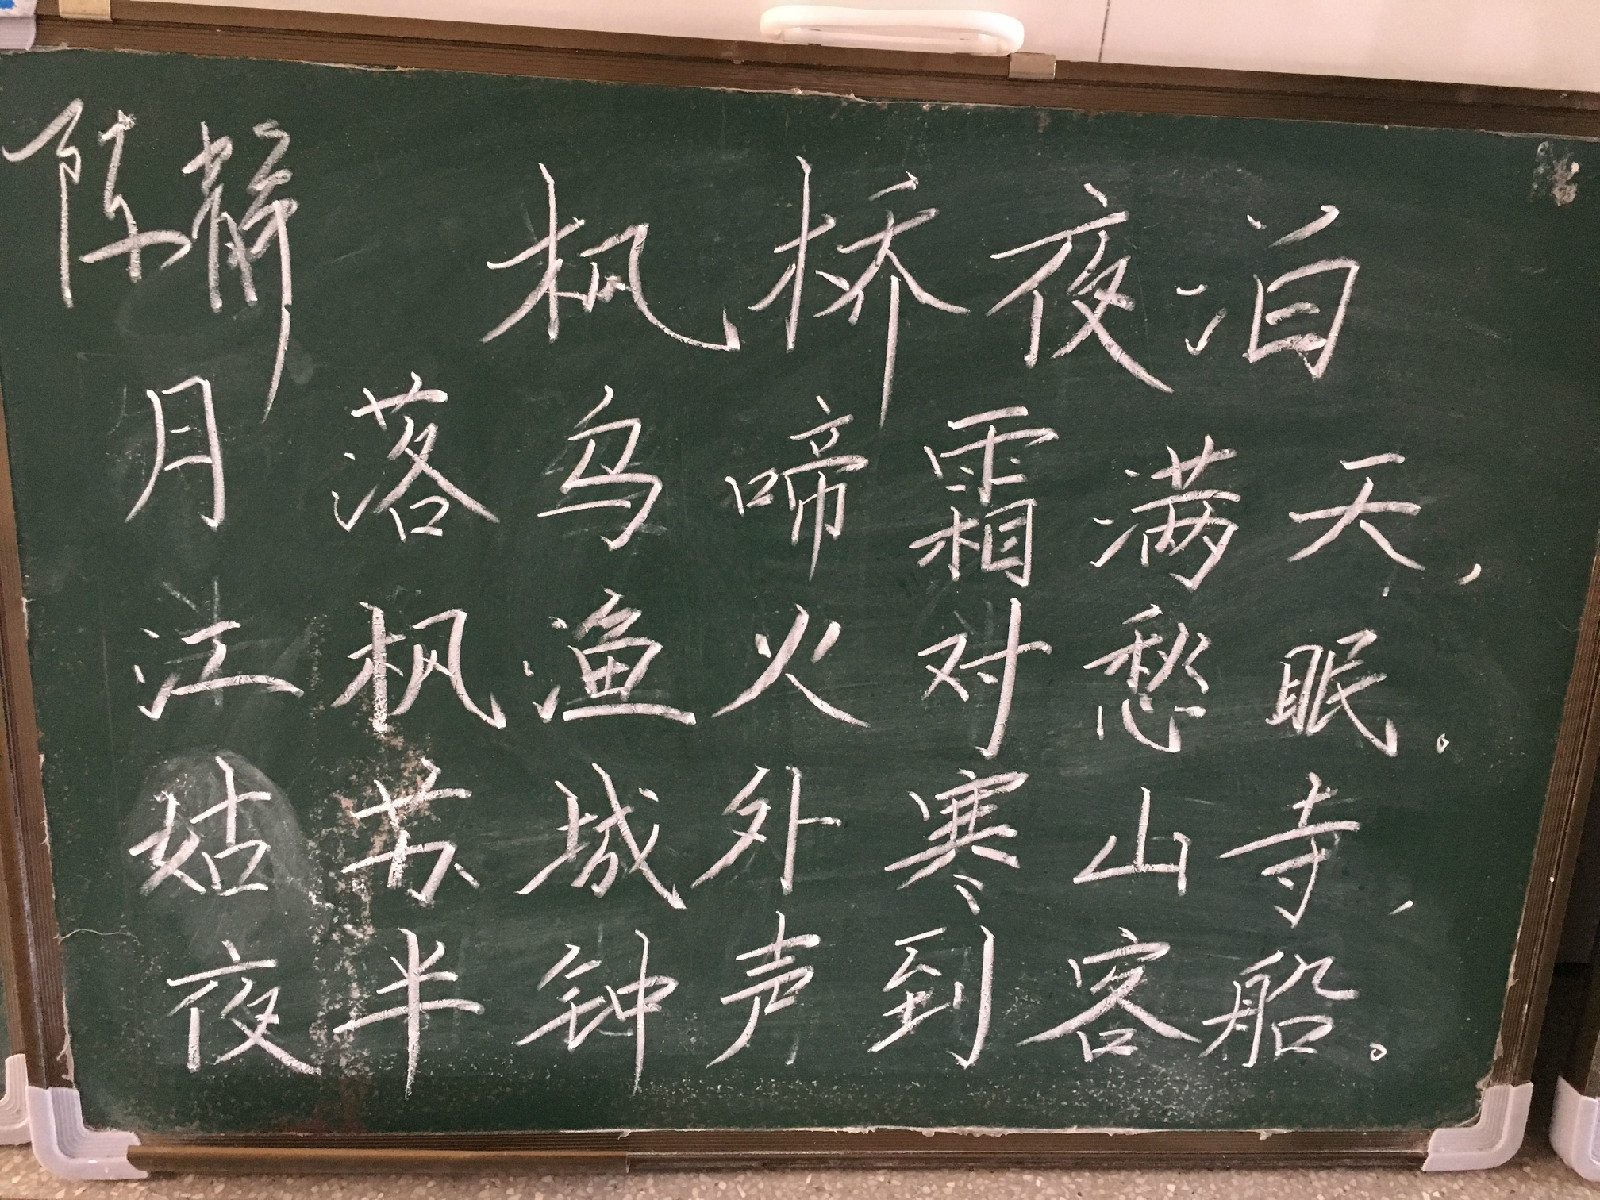 陈静
枫桥夜泊
月落乌啼霜满天，
江枫渔火对愁眠。
姑苏城外寒山寺，
夜半钟声到客船。